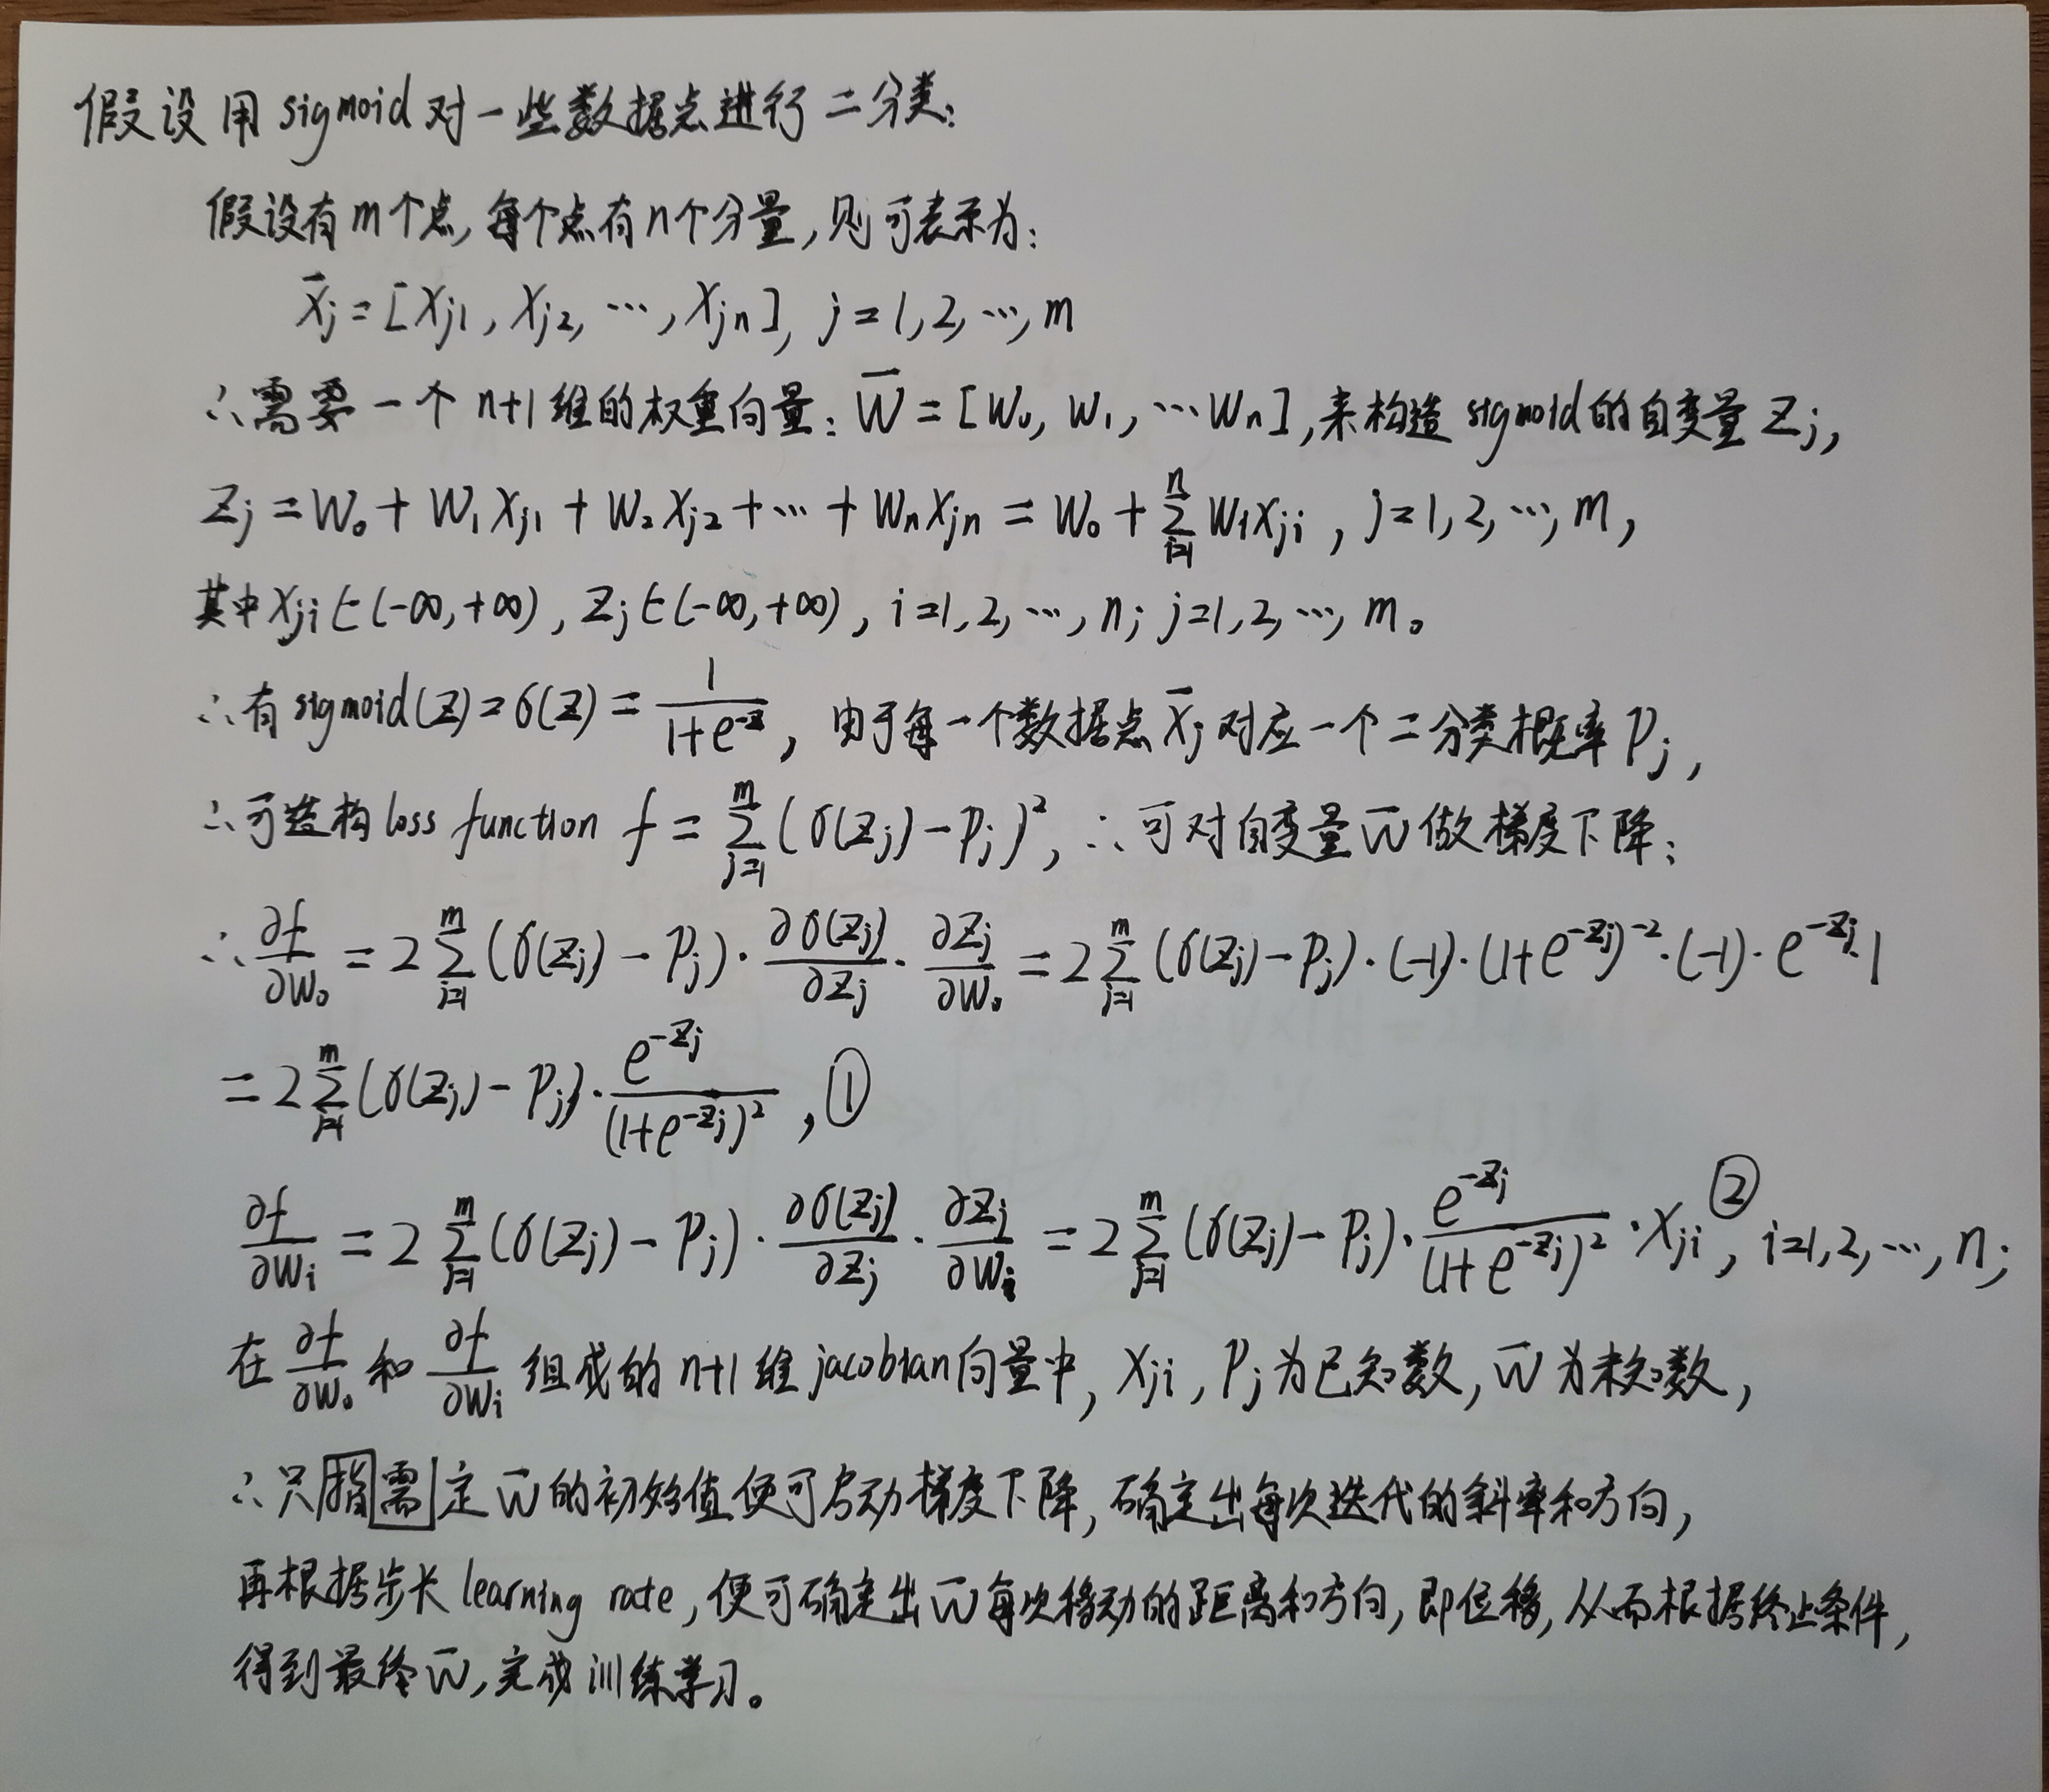 假设用sigmoid对一些数据点进行二分类:
假设有m个点,每个点有n个分量,则可表示为:
x̄ⱼ = [xj1, xj2, ⋯, xjn], j=1,2,⋯,m
∴需要一个n+1维的权重向量: W̄ = [w₀, w₁, ⋯wn],来构造sigmoid的自变量Zj,
Zj = W₀ + W₁xj1 + W₂xj2 + ⋯ + Wnxjn = W₀ + Σ(i=1→n) Wixji , j=1,2,⋯,m,
其中xji∈(-∞,+∞), Zj∈(-∞,+∞), i=1,2,⋯,n; j=1,2,⋯,m。
∴有sigmoid(Z)=σ(Z)= 1/(1+e^-z), 由于每一个数据点x̄j对应一个二分类概率Pj,
∴可造构loss function f = Σ(j=1→m) (σ(Zj)-Pj)², ∴可对自变量w̄做梯度下降:
∴ ∂f/∂W₀ = 2 Σ(j=1→m) (σ(Zj)-Pj)· ∂σ(Zj)/∂Zj · ∂Zj/∂W₀ = 2 Σ(j=1→m) (σ(Zj)-Pj)·(-1)·(1+e^-Zj)^-2·(-1)·e^-Zj·1
= 2 Σ(j=1→m) (σ(Zj)-Pj)· e^-Zj/(1+e^-Zj)² , ①
∂f/∂Wi = 2 Σ(j=1→m) (σ(Zj)-Pj)· ∂σ(Zj)/∂Zj · ∂Zj/∂Wi = 2 Σ(j=1→m) (σ(Zj)-Pj)· e^-Zj/(1+e^-Zj)² ·xji ②, i=1,2,⋯,n;
在 ∂f/∂W₀ 和 ∂f/∂Wi 组成的n+1维jacobian向量中, xji, Pj为已知数, w̄为未知数,
∴只指需定w̄的初始值便可启动梯度下降,确定出每次迭代的斜率和方向,
再根据步长learning rate,便可确定出w̄每次移动的距离和方向,即位移,从而根据终止条件,
得到最终w̄,完成训练学习。